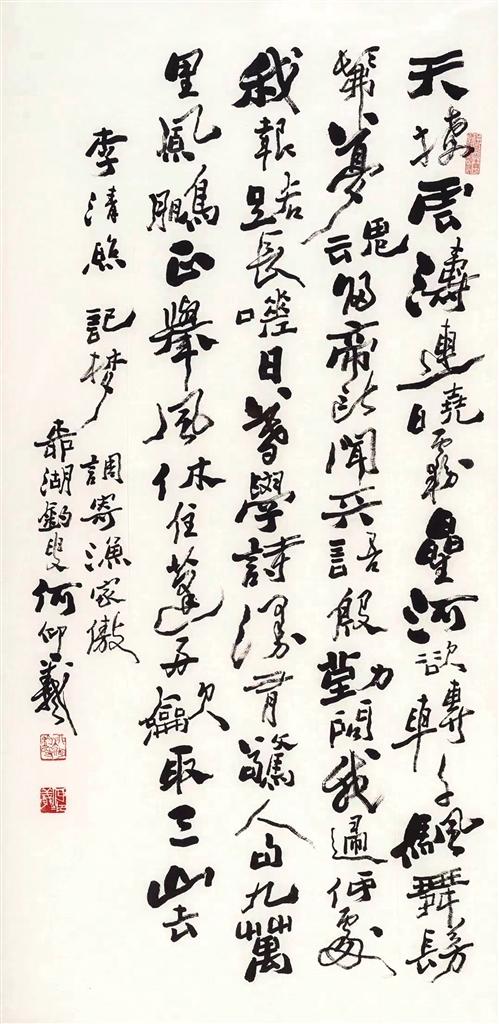 天接雲濤連曉霧星河欲轉千帆舞髣
髴夢魂歸帝所聞天語殷勤問我歸何處
我報路長嗟日暮學詩謾有驚人句九萬
里風鵬正舉風休住蓬舟吹取三山去
李清照 記夢
調寄漁家傲
湖釣叟何仰義